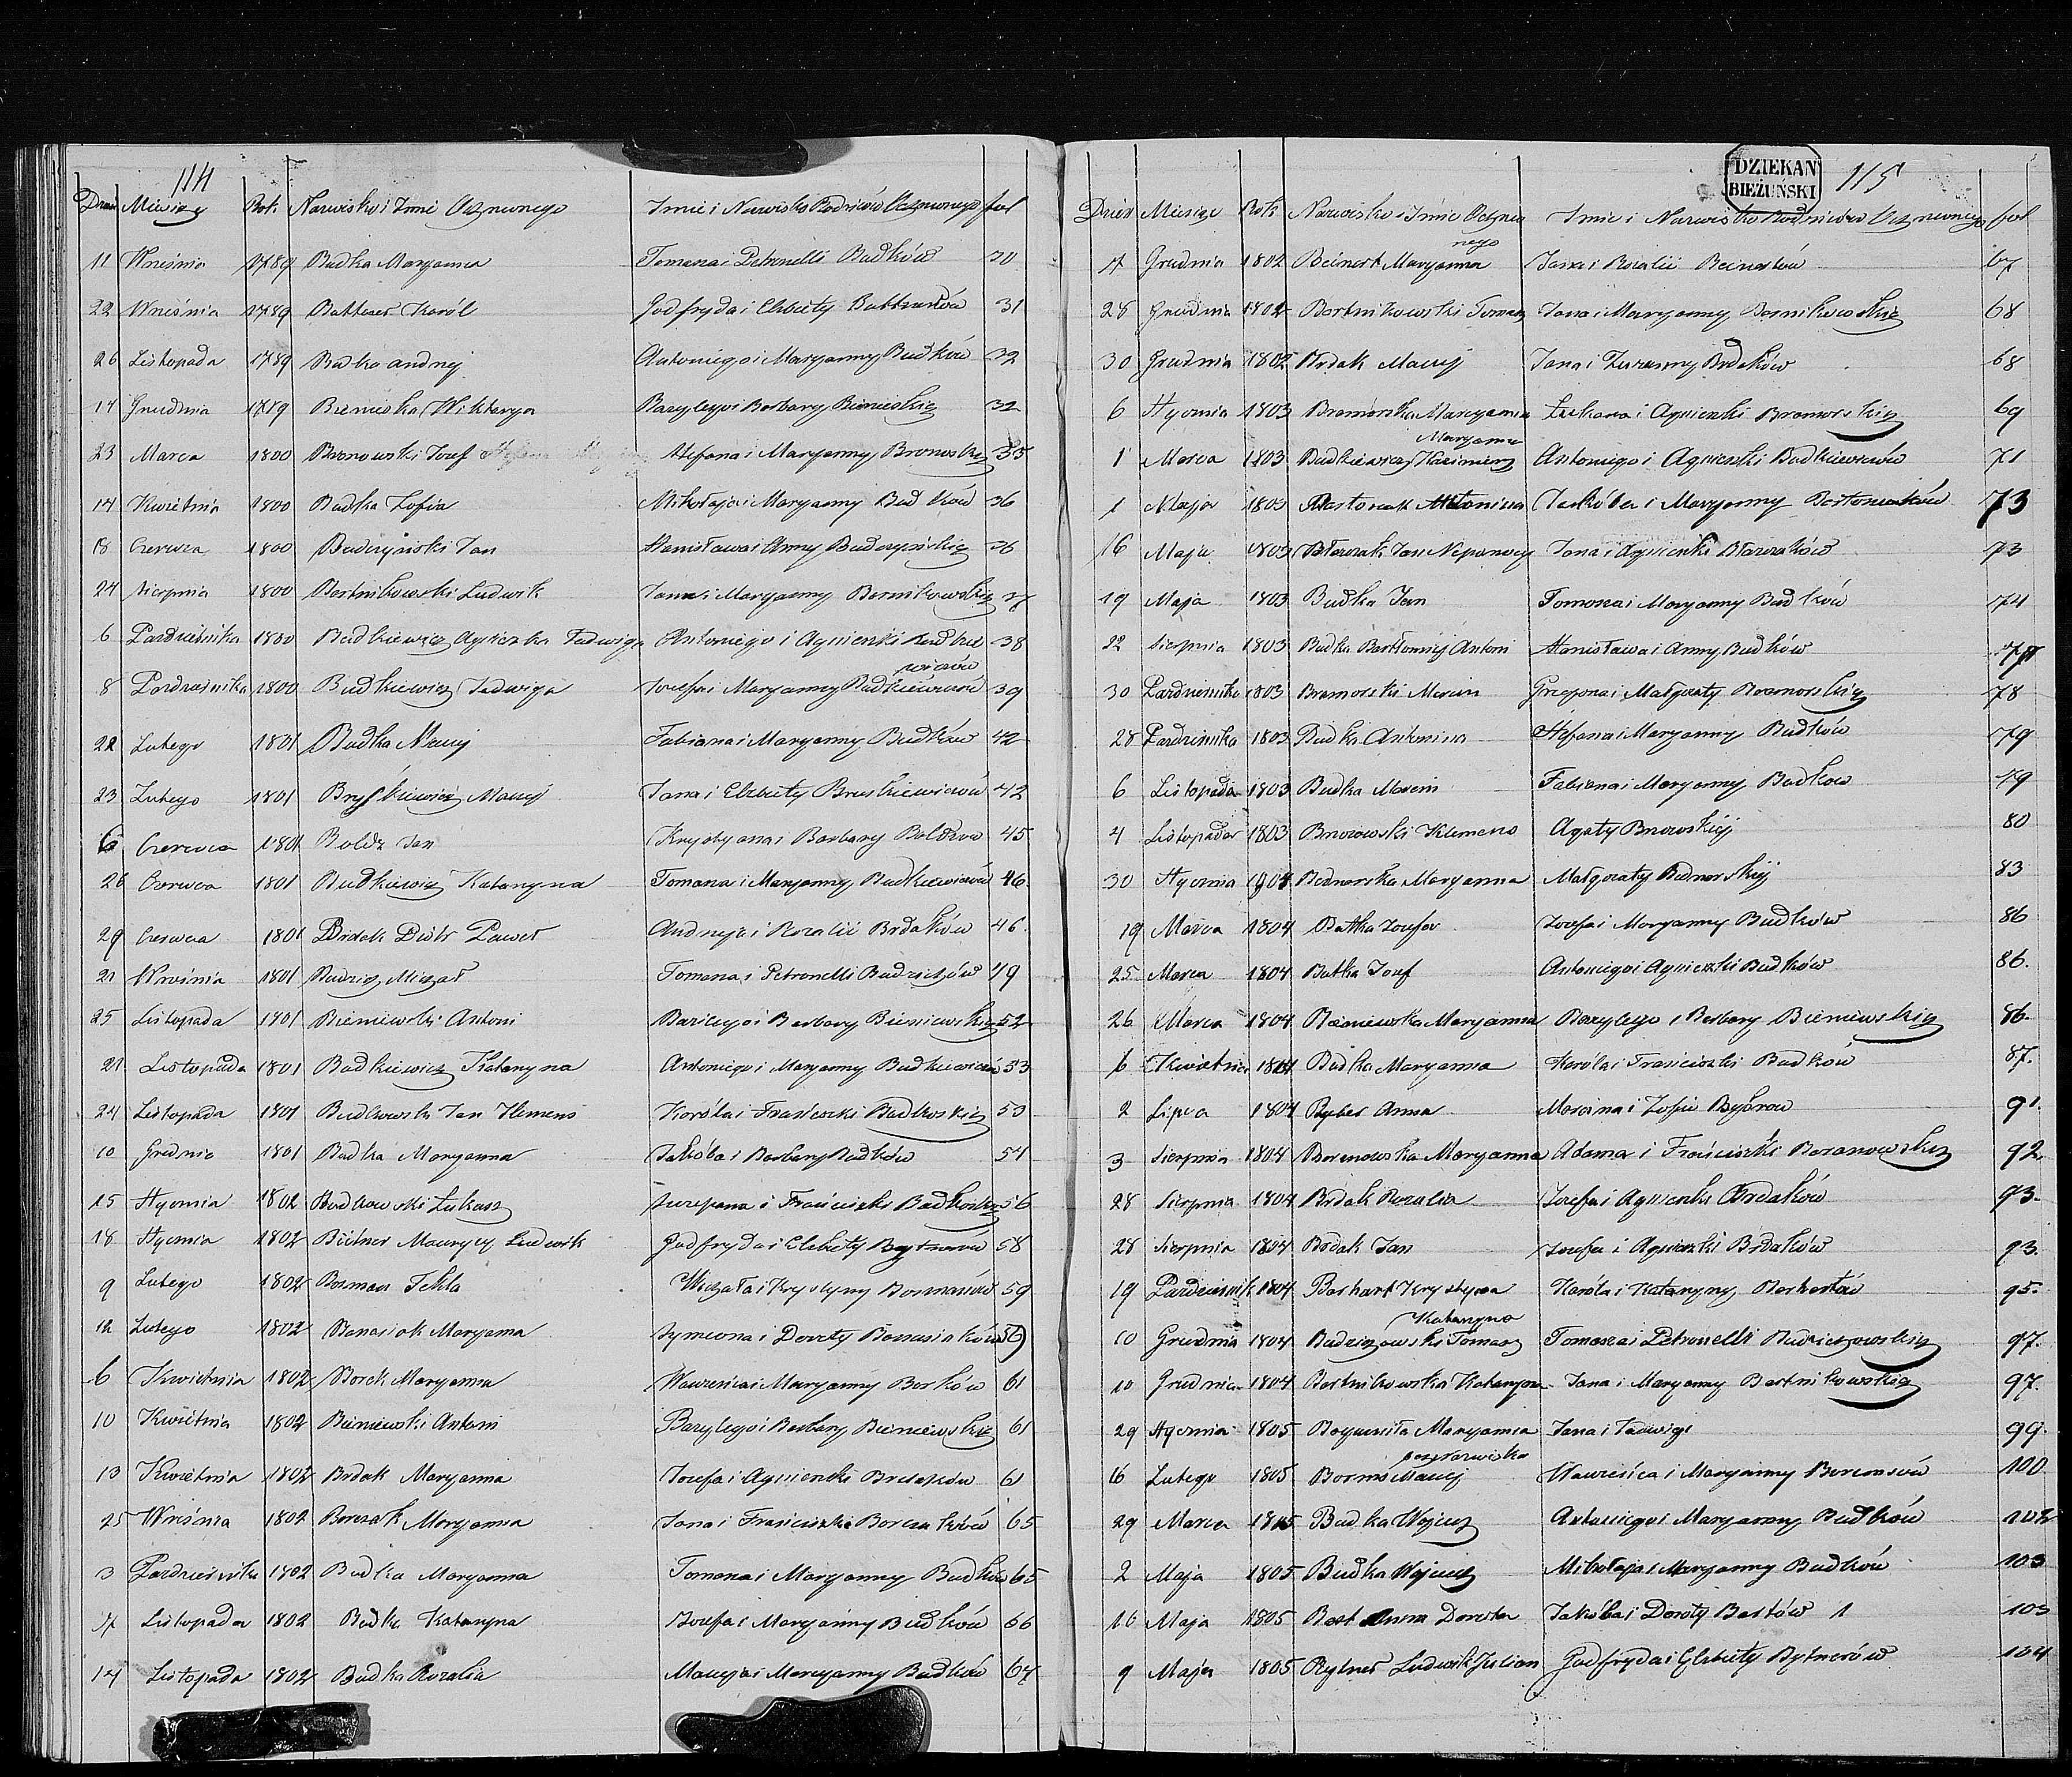 114
Dzień Miesiąc Rok Nazwisko i Imie Ochrzczonego Imie i Nazwisko Rodziców fol
11 Wreśnia 1789 Budka Maryanna Tomasza i Petronelli Budków 30
22 Wreśnia 1789 Karól Godfryda i Elzbiety 31
26 Listopada 1789 Budka Andrzej Antoniego i Maryanny Budków 32
14 Grudnia 1789 Bienieska Wiktorya Bazylego i Barbary Bienieskich 32
23 Marca 1800 Bronowski Jozef Stefana i Maryanny Bronoskich 35
14 Kwietnia 1800 Budka Zofia Mikołaja i Maryanny Budków 36
18 Czerwca 1800 Budczyński Jan Stanisława i Anny Budczyńskich 36
24 Sierpnia 1800 Bortnikowski Ludwik Jana i Maryanny Bornikowskich 37
6 Pazdziernika 1800 Budkiewicz Agnieszka Jadwiga Antoniego i Agnieszki Budkiewiczów 38
8 Pazdziernika 1800 Budkiewicz Jadwiga Jozefa i Maryanny Budkiewiczów 39
22 Lutego 1801 Budka Maciej Fabiana i Maryanny Budków 42
23 Lutego 1801 Bryśkiewicz Maciej Jana i Elzbiety Bruskiewiczów 42
6 Czerwca 1801 Boldz Jan Krystyana i Barbary 45
26 Czerwca 1801 Budkiewicz Katarzyna Tomasza i Maryanny Budkiewiczów 46
29 Czerwca 1801 Brdak Piotr Paweł Andrzeja i Rozalii Brdaków 46
21 Wreśnia 1801 Budzich Michał Tomasza i Petronelli Budzichów 49
25 Listopada 1801 Bieniewski Antoni Bazilego i Barbary Bieniewskich 52
21 Listopada 1801 Budkiewicz Katarzyna Antoniego i Maryanny Budkiewiczów 53
24 Listopada 1801 Budkowski Jan Klemens Karóla i Franciszki Budkoskich 53
10 Grudnia 1801 Budka Maryanna Jakóba i Barbary Budków 54
15 Stycznia 1802 Budkowski Łukasz Szczepana i Franciszki Budkoskich 56
18 Stycznia 1802 Bitner Maurycy Ludwik Godfryda i Elzbiety 58
9 Lutego 1802 Bosman Tekla Michała i Krystyny Bosmanów 59
12 Lutego 1802 Banasiak Maryanna Szymona i Doroty Banasiaków 59
6 Kwietnia 1802 Borek Maryanna Wawrzeńca i Maryanny Borków 61
10 Kwietnia 1802 Bieniewski Antoni Bazylego i Barbary Bieniewskich 61
13 Kwietnia 1802 Brdak Maryanna Jozefa i Agnieszki Brdaków 61
25 Wreśnia 1802 Borczak Maryanna Jana i Franciszki Borczaków 65
3 Pazdziernika 1802 Budka Maryanna Tomasza i Maryanny Budków 65
7 Listopada 1802 Budka Katarzyna Jozefa i Maryanny Budków 66
14 Listopada 1802 Budka Rozalia Macieja i Maryanny Budków 67
DZIEKAN
BIEŻUŃSKI
115
Dzień Miesiąc Rok Nazwisko i Imie Ochrzczonego Imie i Nazwisko Rodziców fol
4 Grudnia 1802 Beinert Maryanna Jana i Rozalii Beinertów 67
28 Grudnia 1802 Bortnikowski Tomasz Jana i Maryanny Bornikowskich 68
30 Grudnia 1802 Brdak Maciej Jana i Zuzanny Brdaków 68
6 Stycznia 1803 Bramorska Maryanna Łukasza i Agnieszki Bramorskich 69
1 Marca 1803 Budkiewicz Kazimierz Maryanna Antoniego i Agnieszki Budkiewiczów 71
1 Maja 1803 Bartosiak Antonina Jakóba i Maryanny Bartosiaków 73
16 Maja 1803 Błaszak Jan Nepomucy Jana i Agnieszki Błaszaków 73
19 Maja 1803 Budka Jan Tomasza i Maryanny Budków 74
22 Sierpnia 1803 Budka Bartłomiej Antoni Stanisława i Anny Budków 77
30 Pazdziernika 1803 Bramorski Marcin Grzegorza i Małgorzaty Bramorskich 78
28 Pazdziernika 1803 Budka Antonina Stefana i Maryanny Budków 79
6 Listopada 1803 Budka Marcin Fabiana i Maryanny Budków 79
4 Listopada 1803 Klemens Agaty 80
30 Stycznia 1804 Bednarska Maryanna Małgorzaty Bednarskiej 83
19 Marca 1804 Batka Jozefa Jozefa i Maryanny Budków 86
25 Marca 1804 Batka Jozef Antoniego i Agnieszki Budków 86.
26 Marca 1804 Bieniewska Maryanna Bazylego i Barbary Bieniewskich 86.
6 Kwietnia 1804 Budka Maryanna Karóla i Franciszki Budków 87.
2 Lipca 1804 Byber Anna Marcina i Zofii Bybrow 91.
3 Sierpnia 1804 Baranowska Maryanna Adama i Franciszki Baranowskich 92
28 Sierpnia 1804 Brdak Rozalia Jozefa i Agnieszki Brdaków 93.
28 Sierpnia 1804 Brdak Jan Jozefa i Agnieszki Brdaków 93.
19 Pazdziernik 1804 Borhart Krystyna Karóla i Katarzyny Borhartów 95.
10 Grudnia 1804 Budzichowski Tomasz Katarzyna Tomasza i Petronelli Budzichowskich 97.
10 Grudnia 1804 Bortnikowska Katarzyna Jana i Maryanny Bortnikowskich 97.
29 Stycznia 1805 Bogumiła Maryanna bez nazwiska Jana i Jadwigi 99.
16 Lutego 1805 Maciej Wawrzeńca i Maryanny 100
29 Marca 1805 Budka Wojciech Antoniego i Maryanny Budków 102
2 Maja 1805 Budka Wojciech Mikołaja i Maryanny Budków 103
16 Maja 1805 Bart Anna Dorota Jakóba i Doroty Bartów 1 103
9 Maja 1805 Bytner Ludwik Julian Godfryda i Elzbiety Bytnerów 104